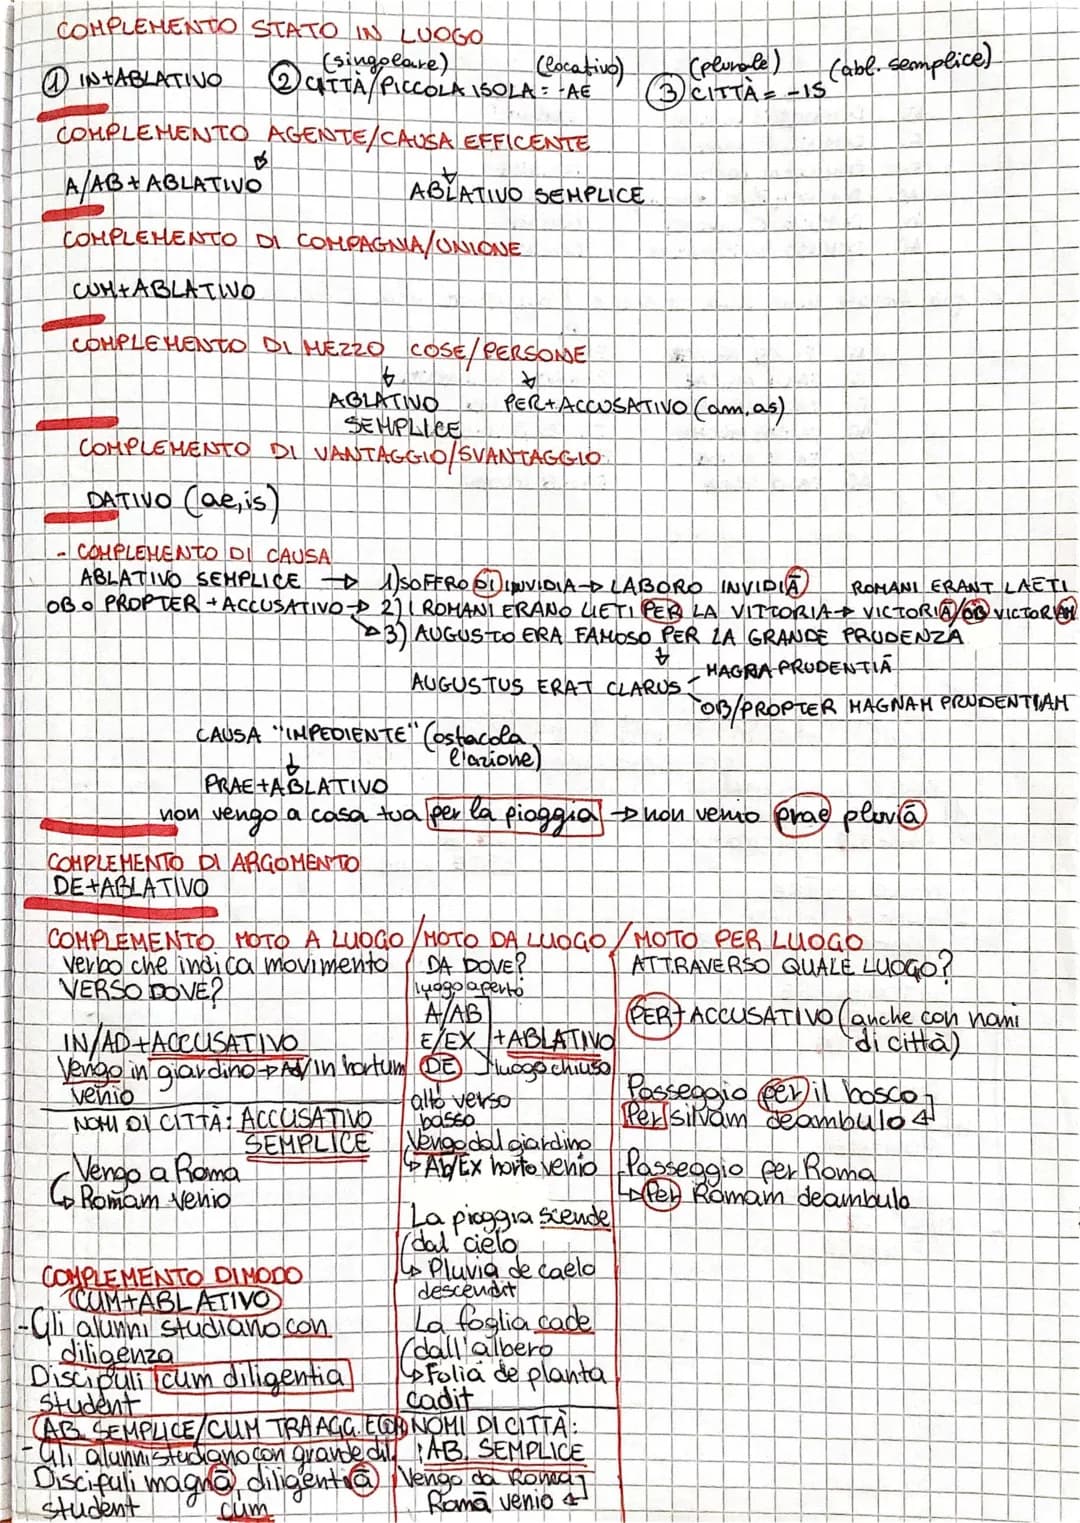 COMPLEMENTO STATO IN LUOGO
① IN+ABLATIVO
(singolare) (locativo)
② CITTÀ/PICCOLA ISOLA = -AE
(plurale) (abl. semplice)
③ CITTÀ = -IS
COMPLEMENTO AGENTE/CAUSA EFFICENTE
A/AB+ABLATIVO
ABLATIVO SEMPLICE
COMPLEMENTO DI COMPAGNIA/UNIONE
CUM+ABLATIVO
COMPLEMENTO DI MEZZO COSE/PERSONE
ABLATIVO SEMPLICE
PER+ACCUSATIVO (am, as)
COMPLEMENTO DI VANTAGGIO/SVANTAGGIO
DATIVO (ae, is)
- COMPLEMENTO DI CAUSA
ABLATIVO SEMPLICE → 1) SOFFRO DI INVIDIA → LABORO INVIDIĀ ROMANI ERANT LAETI
OB O PROPTER + ACCUSATIVO → 2) I ROMANI ERANO LIETI PER LA VITTORIA → VICTORIĀ/OB VICTORIAM
→ 3) AUGUSTO ERA FAMOSO PER LA GRANDE PRUDENZA
AUGUSTUS ERAT CLARUS
MAGNA PRUDENTIĀ
OB/PROPTER MAGNAM PRUDENTIAM
CAUSA "IMPEDIENTE" (ostacola
l'azione)
PRAE+ABLATIVO
non vengo a casa tua per la pioggia → non venio prae pluviā
COMPLEMENTO DI ARGOMENTO
DE+ABLATIVO
COMPLEMENTO MOTO A LUOGO / MOTO DA LUOGO / MOTO PER LUOGO
verbo che indica movimento
VERSO DOVE?
IN/AD+ACCUSATIVO
Vengo in giardino → Ad/in hortum
venio
NOMI DI CITTÀ: ACCUSATIVO
SEMPLICE
Vengo a Roma
↳ Romam venio
DA DOVE?
luogo aperto
A/AB
E/EX +ABLATIVO
DE luogo chiuso
alto verso
basso
Vengo dal giardino
↳ Ab/Ex horto venio
La pioggia scende
dal cielo
↳ Pluvia de caelo
descendit
La foglia cade
dall'albero
↳ Folia de planta
cadit
NOMI DI CITTÀ:
AB. SEMPLICE
Vengo da Roma
Romā venio
ATTRAVERSO QUALE LUOGO?
PER+ACCUSATIVO (anche con nomi
di città)
Passeggio per il bosco
Per silvam deambulo
Passeggio per Roma
↳ Per Romam deambulo
COMPLEMENTO DI MODO
CUM+ABLATIVO
- Gli alunni studiano con
diligenza
Discipuli cum diligentia
student
AB. SEMPLICE/CUM TRA AGG. E
- Gli alunni studiano con grande dil.
Discipuli magnā diligentiā
student cum